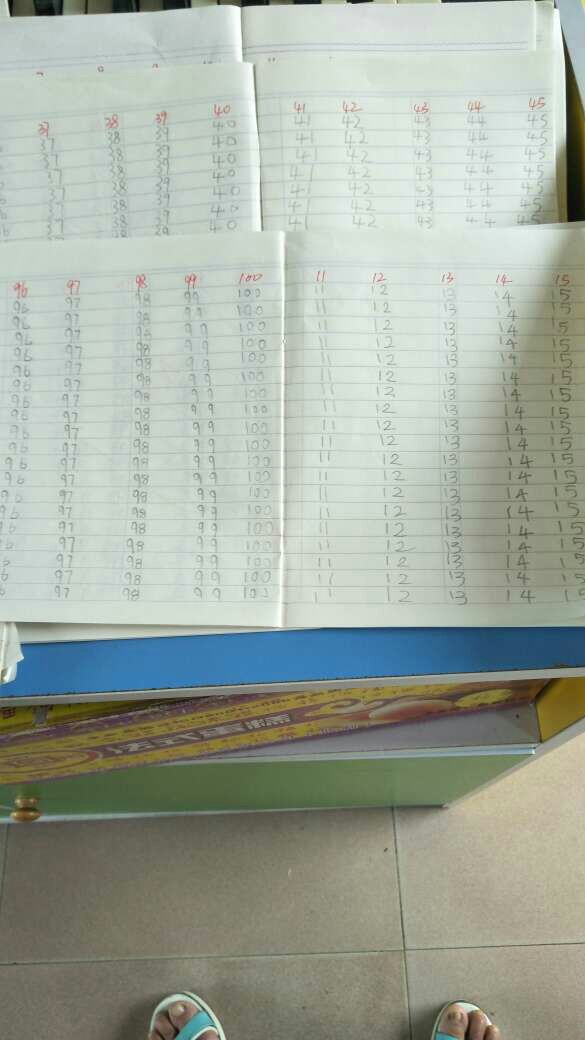 37 38 39 40 41 42 43 44 45
37 38 39 40 41 42 43 44 45
37 38 39 40 41 42 43 44 45
37 38 39 40 41 42 43 44 45
37 38 39 40 41 42 43 44 45
37 38 39 40 41 42 43 44 45
37 38 39 40 41 42 43 44 45
37 38 39 40 41 42 43 44 45
96 97 98 99 100 11 12 13 14 15
96 97 98 99 100 11 12 13 14 15
96 97 98 99 100 11 12 13 14 15
96 97 98 99 100 11 12 13 14 15
96 97 98 99 100 11 12 13 14 15
96 97 98 99 100 11 12 13 14 15
96 97 98 99 100 11 12 13 14 15
96 97 98 99 100 11 12 13 14 15
96 97 98 99 100 11 12 13 14 15
96 97 98 99 100 11 12 13 14 15
96 97 98 99 100 11 12 13 14 15
96 97 98 99 100 11 12 13 14 15
96 97 98 99 100 11 12 13 14 15
96 97 98 99 100 11 12 13 14 15
96 97 98 99 100 11 12 13 14 15
96 97 98 99 100 11 12 13 14 15
96 97 98 99 100 11 12 13 14 15
96 97 98 99 100 11 12 13 14 15
96 97 98 99 100 11 12 13 14 15
96 97 98 99 100 11 12 13 14 15